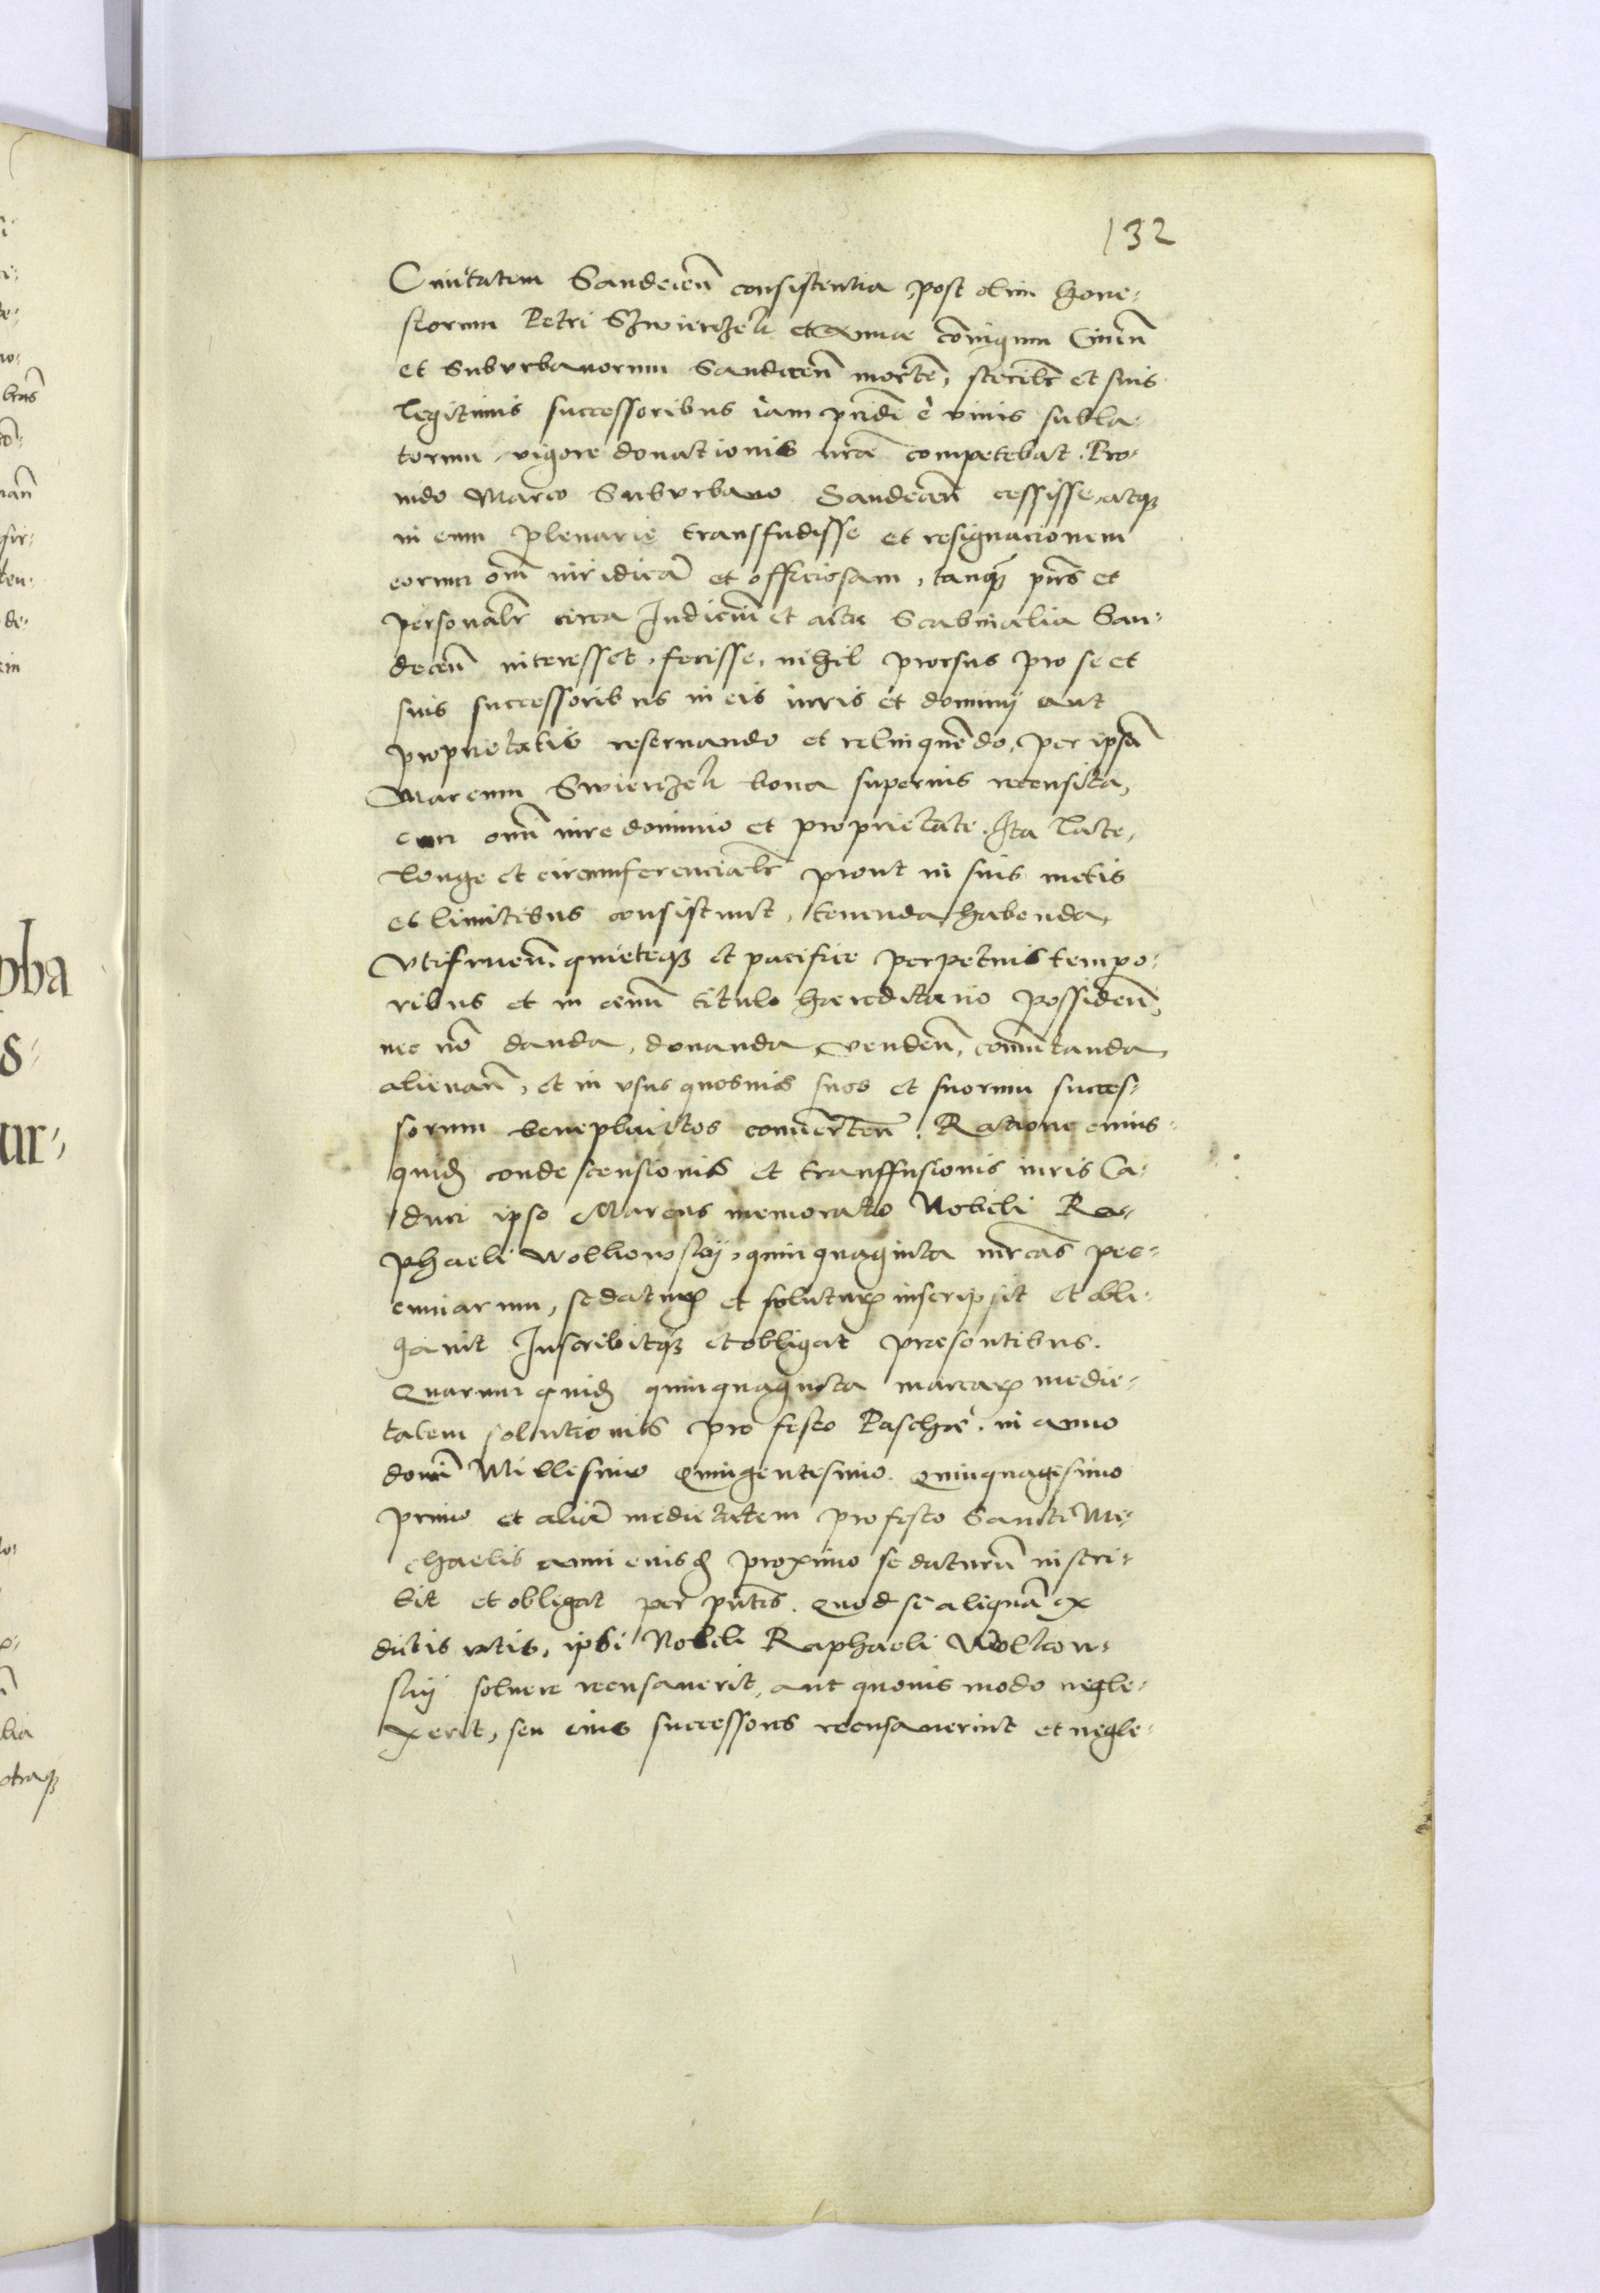 132
Ciuitatem Sandecen̄ consistentia, post olim hone-
storum Petri Szwierczek et Annae coniugum Ciuiū
et Suburbanorum Sandecen̄ mortē, sterilr et suis
legitimis successoribus iam pridē è viuis subla-
torum, vigore donationis nrāe competebat. Pro-
uido Marco Suburbano Sandecen̄ cessisse, atqȝ
in eum plenarie transfudisse et resignacionem
eorum oīm iuridicā et officiosam, tanqȝ pn̄s et
personalr circa Iudiciū et acta Scabinalia San-
decen̄ interesset, fecisse, nihil prorsus pro se et
suis successoribus in eis iuris et dominij aut
proprietatis reseruando et relinquēdo, per ipsū
Marcum Swierczek bona superius recensita,
cum omī iure dominio et proprietate. Ita late,
longe et circumferencialr prout in suis metis
et limitibus consistunt, tenenda, habenda,
Vtifruen̄. quieteqȝ et pacifice perpetuis tempo-
ribus et in aeuū titulo haereditario possiden̄,
nec nō danda, donanda, venden̄, comutanda,
alienan̄, et in vsus quosuis suos et suorum succes-
sorum beneplacitos conuerten̄. Ratione cuius-
quidē condescensionis et transffusionis iuris Ca-
duci ipse Marcus memorato Nobili Ra-
phaeli Wolliowskij, quinquaginta mrcās pec-
cuniarum, se daturū et soluturū inscripsit et obli-
gauit Inscribitqȝ et obligat praesentibus.
Quarum quidē quinquaginta marcarū medie-
tatem solutionis pro festo Paschae. in anno
domī Millesimo Quingentesimo. Quinquagesimo
primo et aliā medietatem pro festo Sancti Mi-
chaelis anni eiusdē proximo se daturū inscri-
bit et obligat per pn̄tes. Quod si aliquā ex
dictis ratis, ipsi Nobili Raphaeli Wollow-
skij soluere recusauerit, aut quouis modo negle-
xerit, seu eius successores recusauerint et negle-